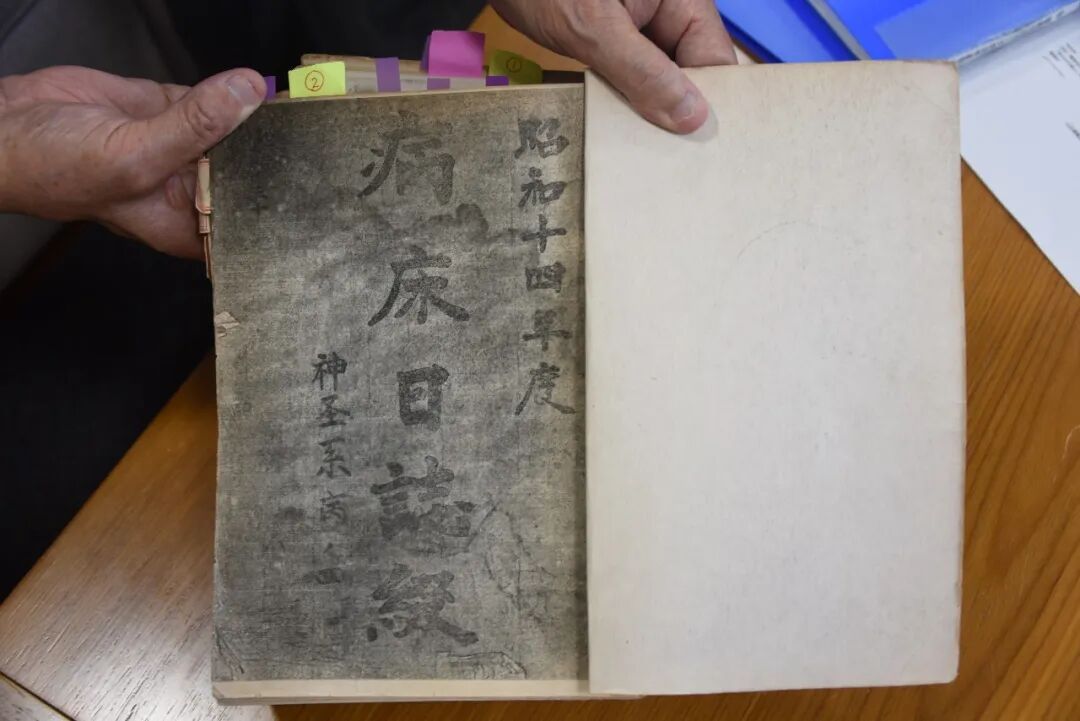 ② ①
昭和十四年度
病床日誌綴
神圣系
四